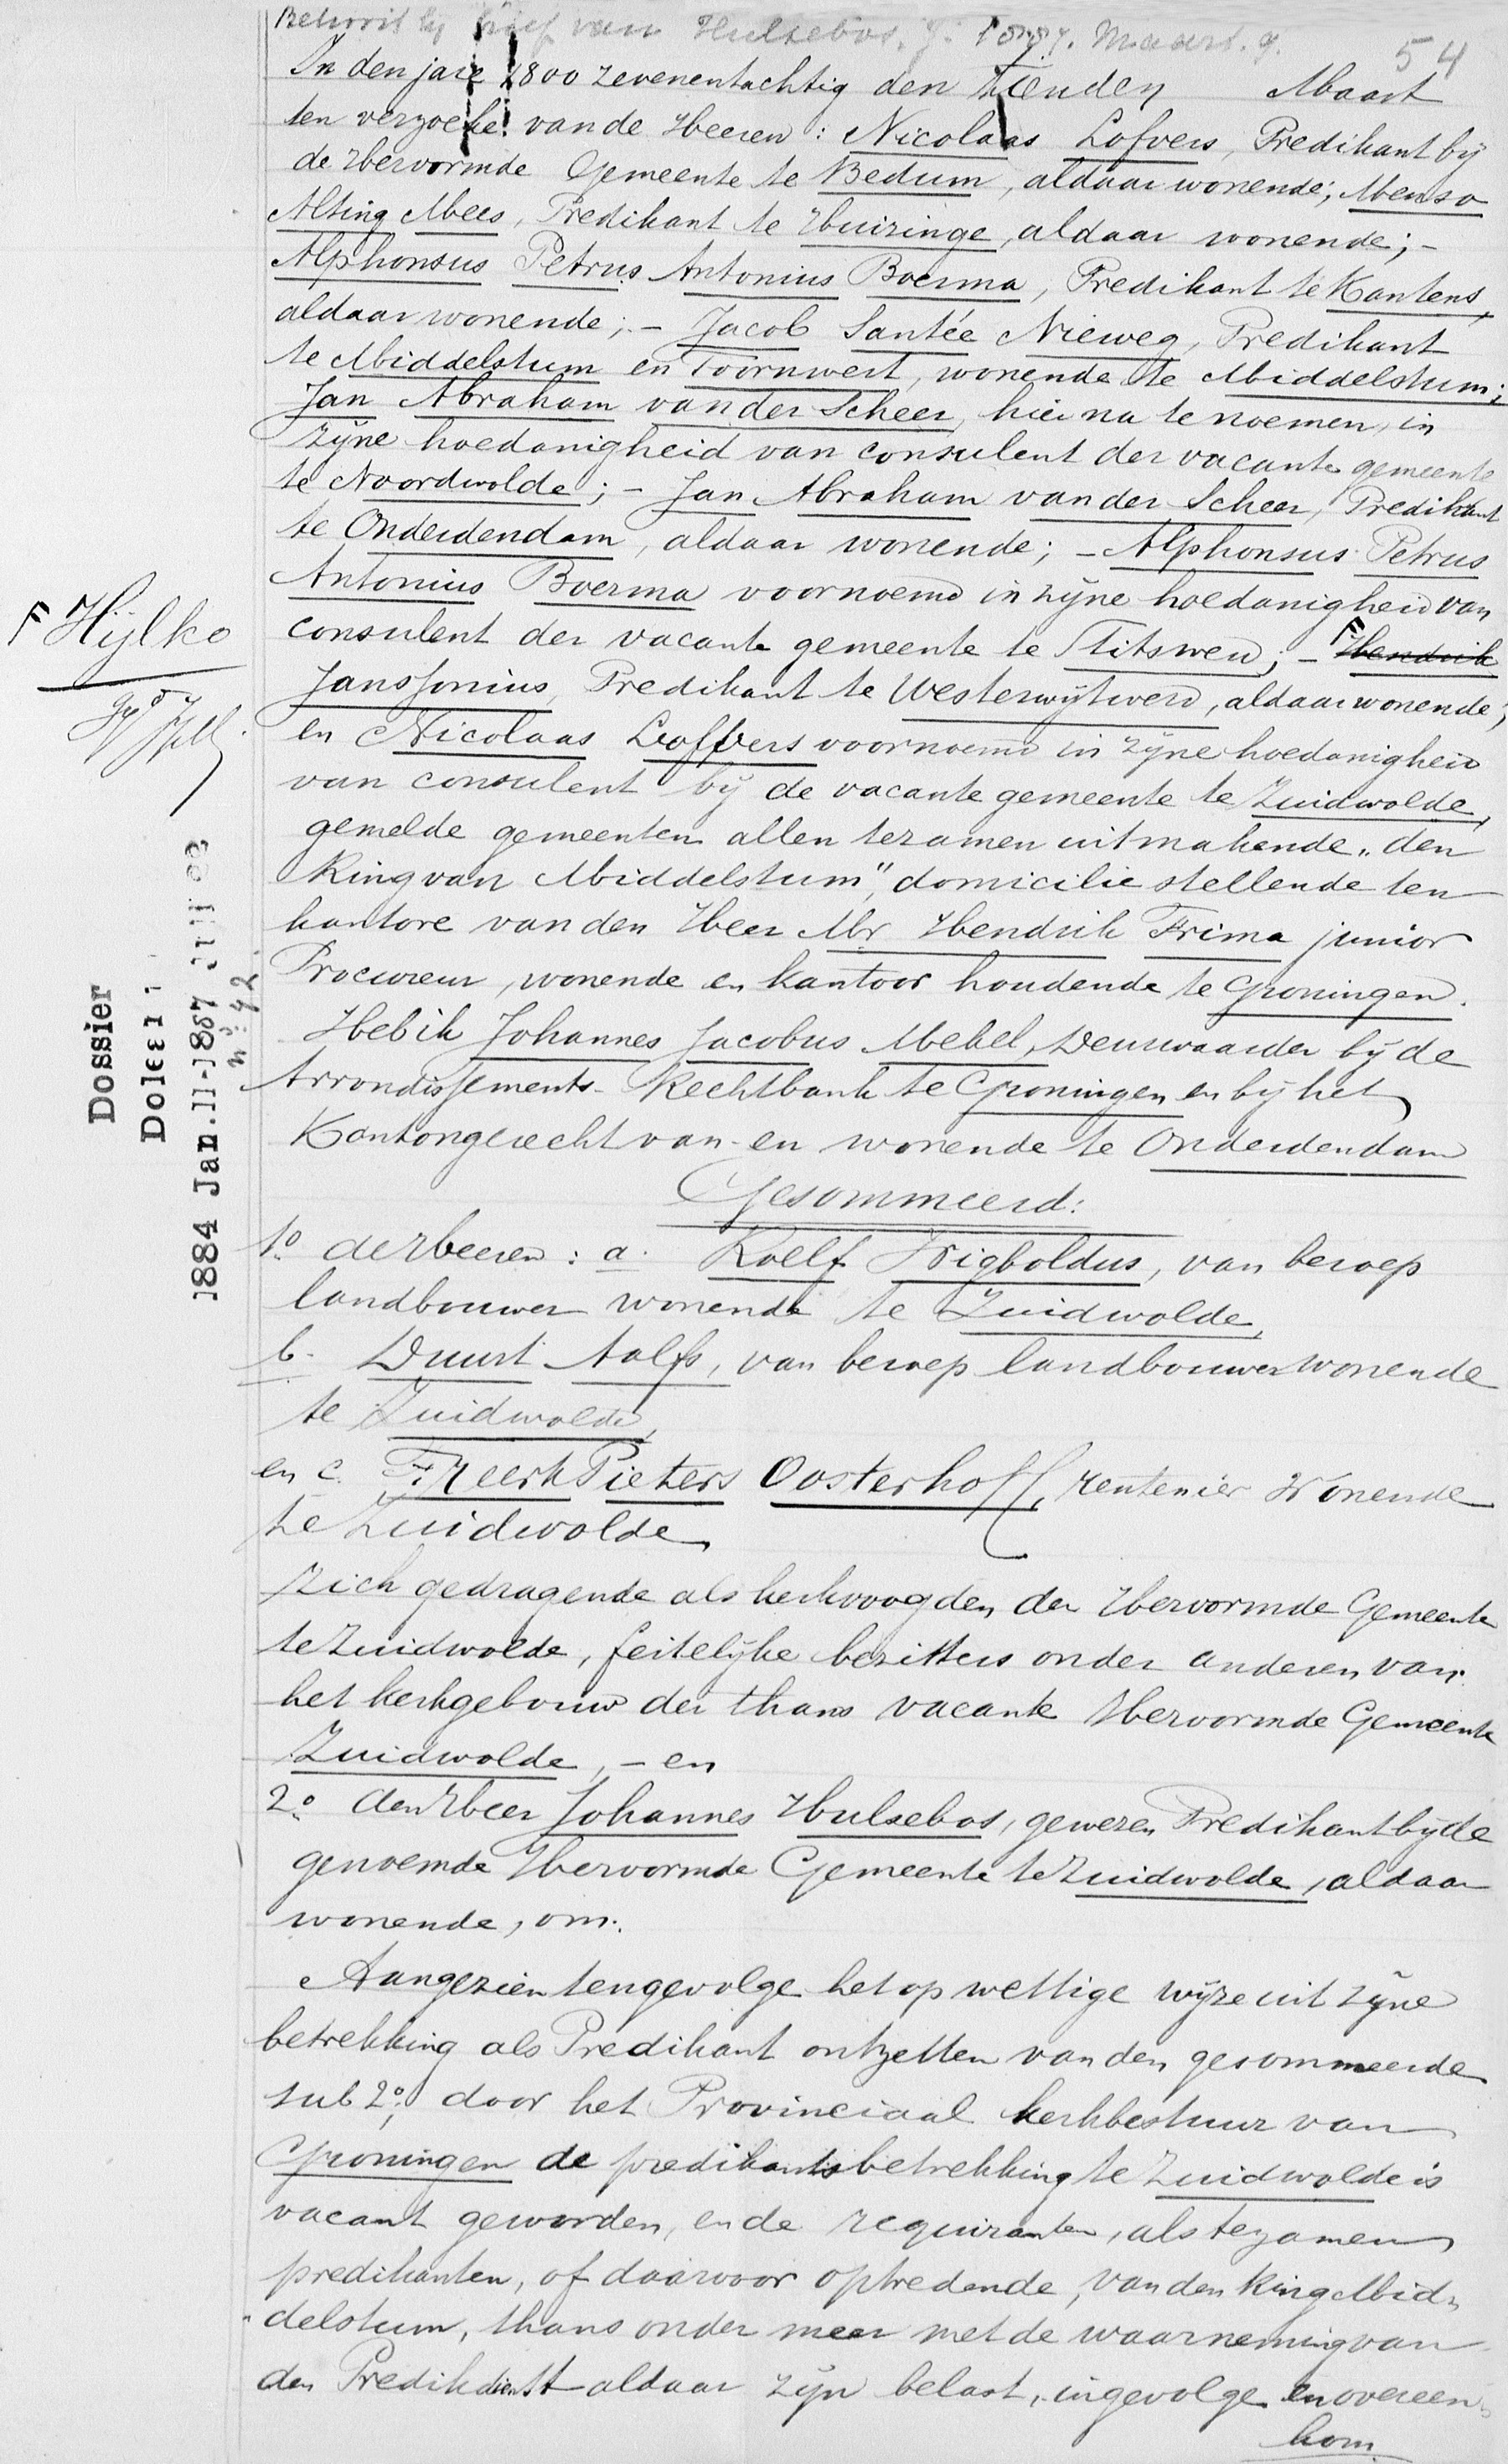 Behoort bij brief van Hulsebos. Maart.
54
In den jare 1800 zevenentachtig den tienden Maart
ten verzoeke van de Heeren: Nicolaas Lofvers, Predikant bij
de Hervormde Gemeente te Bedum, aldaar wonende; Menso
Alting Mees, Predikant te Huizinge, aldaar wonende; -
Alphonsus Petrus Antonius Boerma, Predikant te Kantens,
aldaar wonende; - Jacob Santée Nieweg, Predikant
te Middelstum en Toornwert, wonende te Middelstum;
Jan Abraham van der Scheer, hier na te noemen, in
zijne hoedanigheid van consulent der vacante gemeente
te Noordwolde; - Jan Abraham van der Scheer, Predikant
te Onderdendam, aldaar wonende; - Alphonsus Petrus
Antonius Boerma voornoemd in zijne hoedanigheid van
consulent der vacante gemeente te Stitswerd; - F Hendrik
F Hijlko
Jansonius, Predikant te Westerwijtwerd, aldaar wonende;
en Nicolaas Loffvers voornoemd in zijne hoedanigheid
van consulent bij de vacante gemeente te Zuidwolde,
gemelde gemeenten allen tezamen uitmakende "den
Ring van Middelstum", domicilie stellende ten
kantore van den Heer Mr Hendrik Frima junior
Procureur, wonende en kantoor houdende te Groningen.
Heb ik Johannes Jacobus Mekel, Deurwaarder bij de
Arrondissements-Rechtbank te Groningen en bij het
Kantongerecht van- en wonende te Onderdendam
Gesommeerd:
1o de Heeren: a. Roelf Wigboldus, van beroep
landbouwer wonende te Zuidwolde,
b. Duurt Aalfs, van beroep landbouwer wonende
te Zuidwolde,
en c. Freerk Pieters Oosterhoff, rentenier wonende
te Zuidwolde,
zich gedragende als kerkvoogden der Hervormde Gemeente
te Zuidwolde, feitelijke bezitters onder anderen van
het kerkgebouw der thans vacante Hervormde Gemeente
Zuidwolde, - en
2o den Heer Johannes Hulsebos, gewezen Predikant bij de
genoemde Hervormde Gemeente te Zuidwolde, aldaar
wonende, om:
Aangezien tengevolge het op wettige wijze uit zijne
betrekking als Predikant ontzetten van den gesommeerde
sub 2o; door het Provinciaal kerkbestuur van
Groningen de predikantsbetrekking te Zuidwolde is
vacant geworden, en de requiranten, als tezamen
predikanten, of daarvoor optredende, van den Ring Mid-
delstum, thans onder meer met de waarneming van
den Predikdienst aldaar zijn belast, ingevolge en overeen-
kom
Dossier
1884 Jan.11-1887
no: 42.